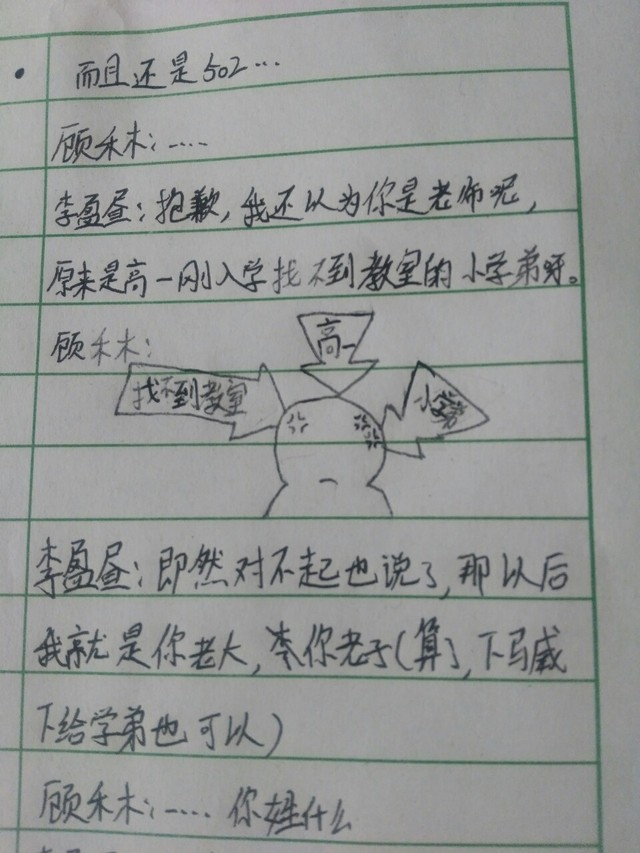 而且还是502...
顾禾木:.....
李盈昼:抱歉,我还以为你是老师呢,
原来是高一刚入学找不到教室的小学弟呀。
顾禾木:
高一
找不到教室
小学弟
李盈昼:即然对不起也说了,那以后
我就是你老大,李你老子(算了,下马威
下给学弟也可以)
顾禾木:..... 你姓什么